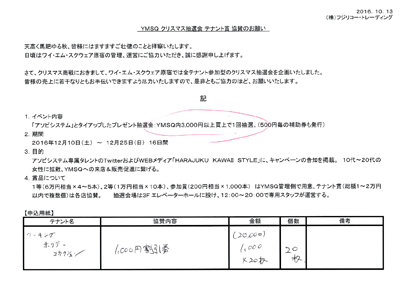 2016. 10. 13
(株)フジリコートレーディング
YMSQ クリスマス抽選会 テナント賞 協賛のお願い
天高く馬肥ゆる秋、皆様にはますますご壮健のことと拝察いたします。
日頃はワイ・エム・スクウェア原宿の管理、運営にご協力いただき、誠に感謝申し上げます。
さて、クリスマス商戦におきまして、ワイ・エム・スクウェア原宿では全テナント参加型のクリスマス抽選会を企画いたしました。
皆様の売上に花を添えるお手伝いできますよう出来いたしますので、是非ともご協力のほど、お願いいたします。
記
1. イベント内容
「アソビシステム」とタイアップしたプレゼント抽選会:YMSQ内3,000円以上買上で1回抽選。(500円毎の補助券も発行)
2. 期間
2016年12月10日(土) ～ 12月25日(日) 16日間
3. 目的
アソビシステム専属タレントのTwitterおよびWEBメディア「HARAJUKU KAWAII STYLE」に、キャンペーンの参加を掲載。 10代～20代の
女性に拡散、YMSQへの来店&販売促進に繋げる。
4. 賞品について
1等(6万円相当×4～5本)、2等(1万円相当×10本)、参加賞(200円相当×1,000本) はYMSQ管理側で用意、テナント賞(総額1～2万円
以内で複数個)は各店協賛。 抽選会場は3F エレベーターホールに設け、12:00～20:00で専用スタッフが運営する。
【申込用紙】
テナント名 協賛内容 金額 個数 備考
ワーキング ホリデー
1,000円 割引券 (20,000) 1,000 ×20枚 20枚